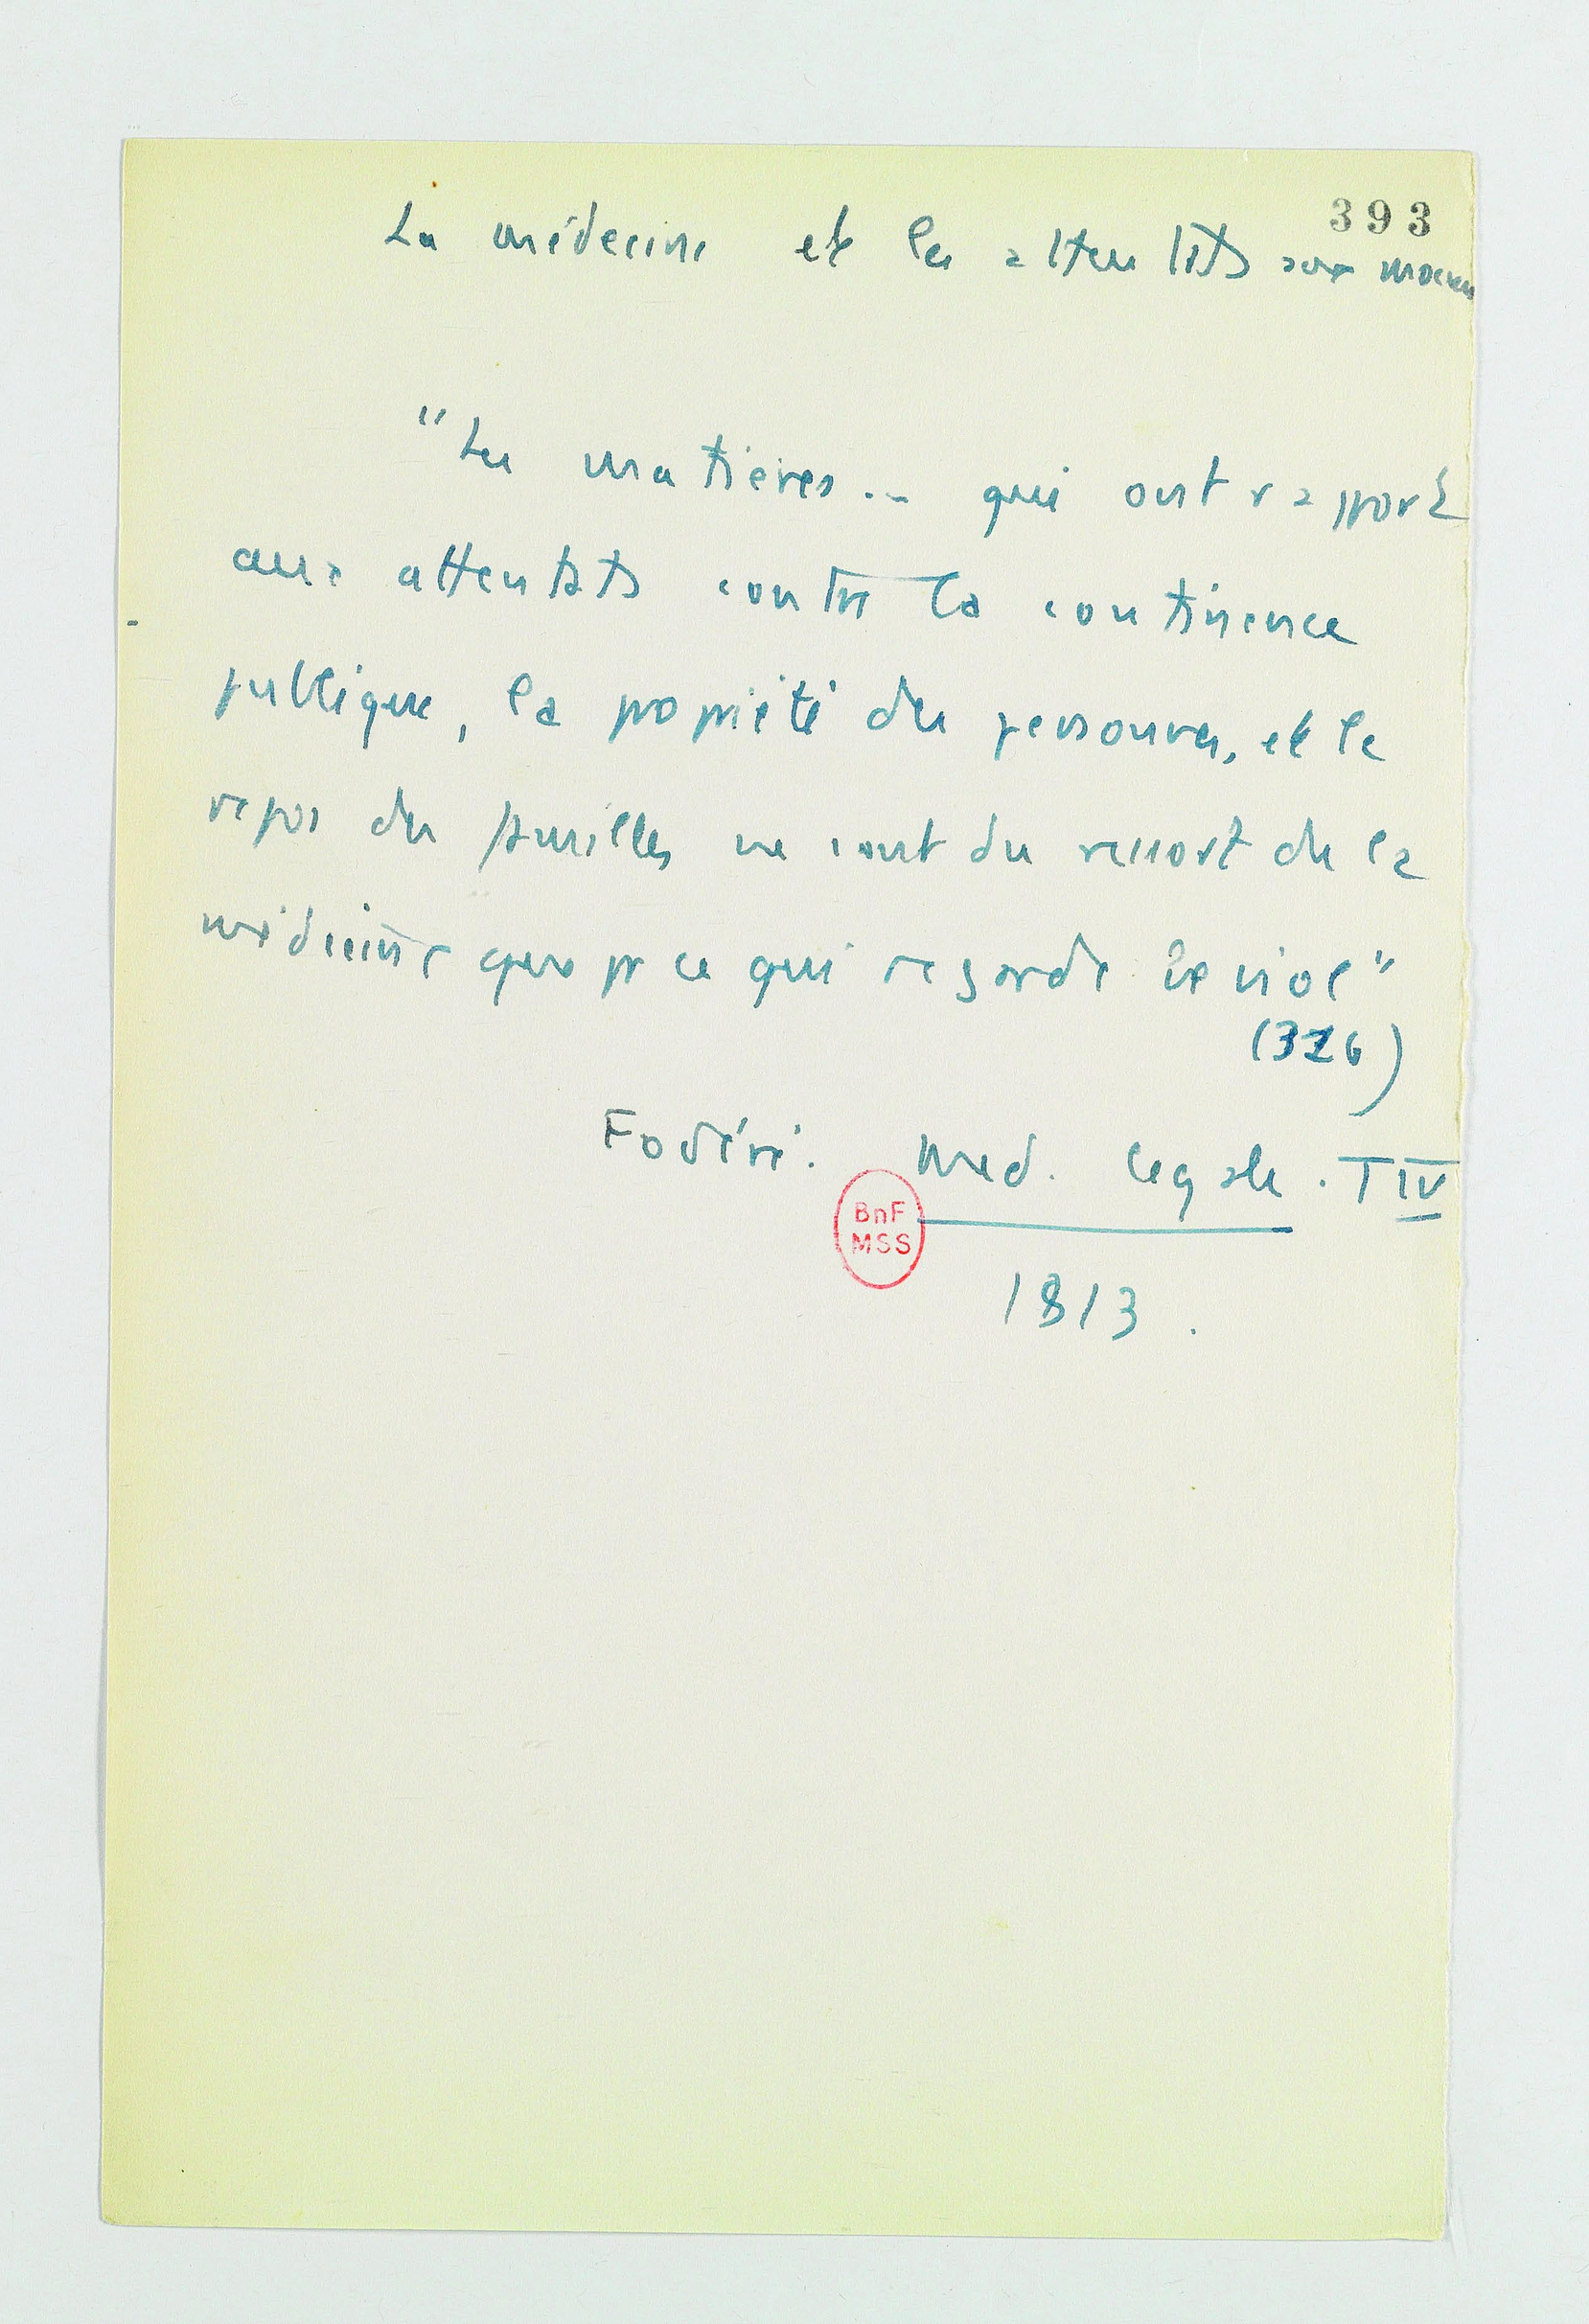 393
La médecine et les attentats aux moeurs
"Les matières... qui ont rapport
aux attentats contre la continence
publique, la propriété des personnes, et le
repos des familles ne sont du ressort de la
médecine que pr ce qui regarde le viol"
(326)
Fodéré. Med. legale. T IV
BnF
MSS
1813.